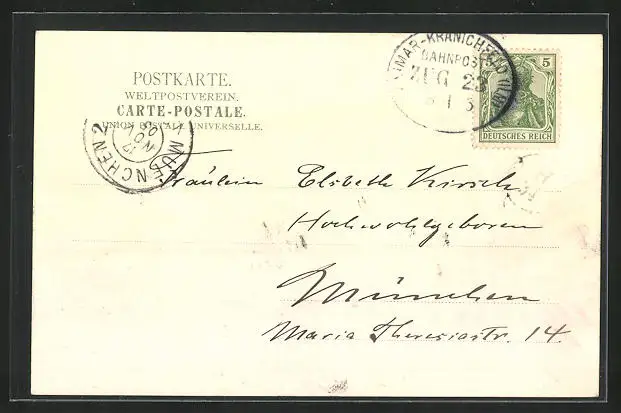 POSTKARTE.
WELTPOSTVEREIN.
CARTE-POSTALE.
UNION POSTALE UNIVERSELLE.
MUENCHEN 2
WEIMAR-KRANICHFELD (ILM)
BAHNPOST
ZUG 23
5
DEUTSCHES REICH
Fräulein Elsbeth Kirsch
Hochwohlgeboren
München
Maria Theresiastr. 14.